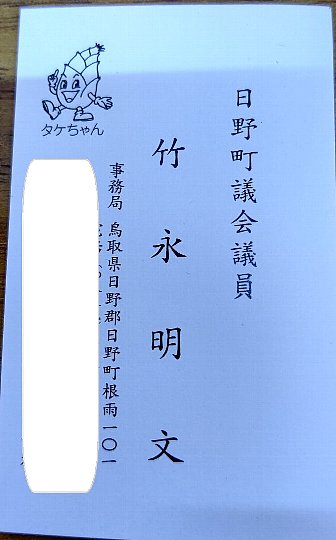 日野町議会議員
竹永明文
事務局 鳥取県日野郡日野町根雨一〇一
タケちゃん